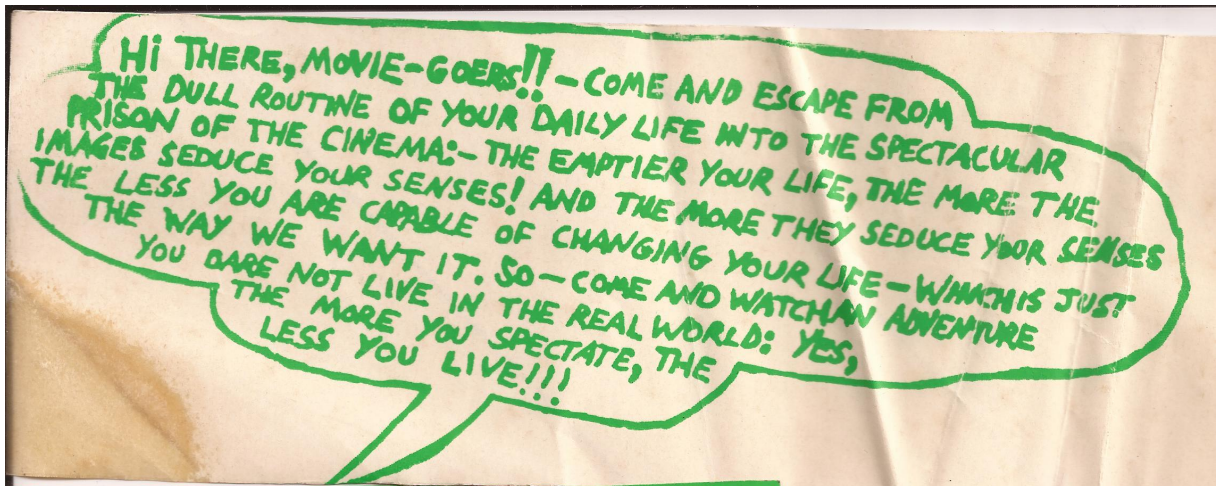 Hi THERE, MOVIE-GOERS!! - COME AND ESCAPE FROM
THE DULL ROUTINE OF YOUR DAILY LIFE INTO THE SPECTACULAR
PRISON OF THE CINEMA:- THE EMPTIER YOUR LIFE, THE MORE THE
IMAGES SEDUCE YOUR SENSES! AND THE MORE THEY SEDUCE YOUR SENSES
THE LESS YOU ARE CAPABLE OF CHANGING YOUR LIFE - WHICH IS JUST
THE WAY WE WANT IT. SO - COME AND WATCH AN ADVENTURE
YOU DARE NOT LIVE IN THE REAL WORLD: YES,
THE MORE YOU SPECTATE, THE
LESS YOU LIVE!!!